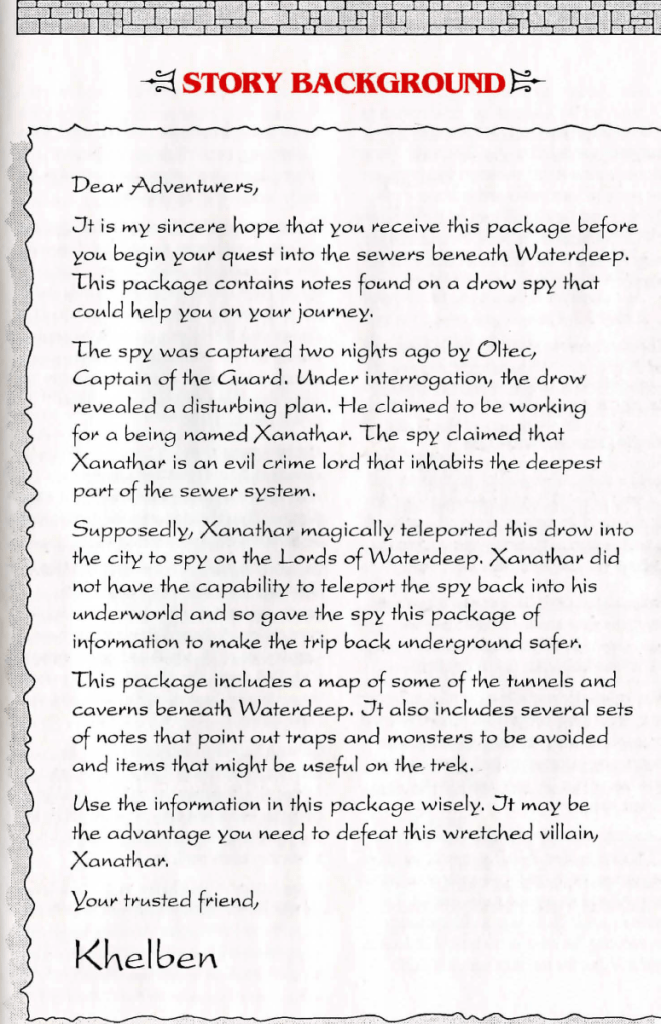 STORY BACKGROUND
Dear Adventurers,
It is my sincere hope that you receive this package before
you begin your quest into the sewers beneath Waterdeep.
This package contains notes found on a drow spy that
could help you on your journey.
The spy was captured two nights ago by Oltec,
Captain of the Guard. Under interrogation, the drow
revealed a disturbing plan. He claimed to be working
for a being named Xanathar. The spy claimed that
Xanathar is an evil crime lord that inhabits the deepest
part of the sewer system.
Supposedly, Xanathar magically teleported this drow into
the city to spy on the Lords of Waterdeep. Xanathar did
not have the capability to teleport the spy back into his
underworld and so gave the spy this package of
information to make the trip back underground safer.
This package includes a map of some of the tunnels and
caverns beneath Waterdeep. It also includes several sets
of notes that point out traps and monsters to be avoided
and items that might be useful on the trek.
Use the information in this package wisely. It may be
the advantage you need to defeat this wretched villain,
Xanathar.
Your trusted friend,
Khelben